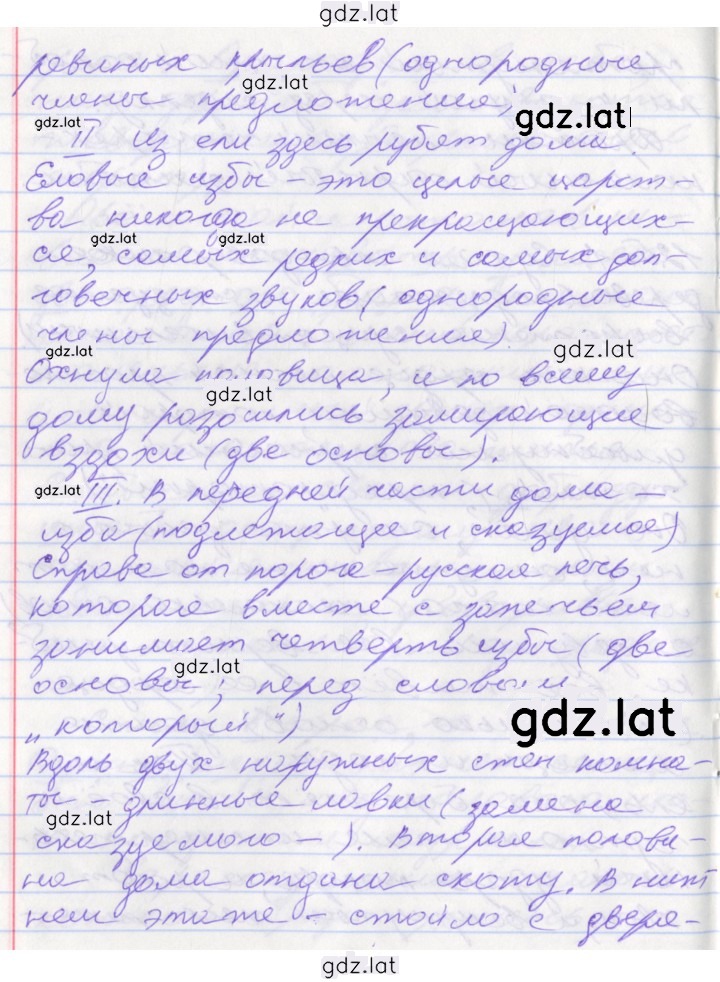 gdz.lat
ревиных крыльев (однородные
gdz.lat
члены предложения)
gdz.lat
gdz.lat
II Из ели здесь рубят дома.
Еловые избы – это целые царст-
ва никогда не прекращающих-
gdz.lat gdz.lat
ся, самых редких и самых дол-
говечных звуков (однородные
члены предложения)
gdz.lat gdz.lat
Охнула половица, и по всему
gdz.lat
дому разошлись замирающие
вздохи (две основы).
gdz.lat
III. В передней части дома –
изба (подлежащее и сказуемое)
Справа от порога – русская печь,
которая вместе с запечьем
занимает четверть избы (две
gdz.lat
основы; перед словом
„который")
gdz.lat
Вдоль двух наружных стен комна-
ты – длинные лавки (замена
gdz.lat
сказуемого –). Вторая полови-
на дома отдана скоту. В ниж
нем этаже – стойло с двере-
gdz.lat